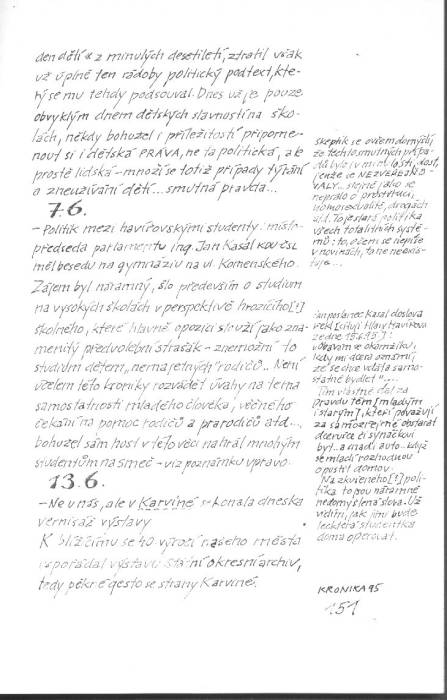 den dětí" z minulých desetiletí, ztratil však
už úplně ten rádoby politický podtext, kte-
rý se mu tehdy podsouval. Dnes už je pouze
obvyklým dnem dětských slavností na ško-
lách, někdy bohužel i příležitostí připome-
nout si i dětská PRÁVA, ne ta politická, ale
prostě lidská - množí se totiž případy týrání
a zneužívání dětí... smutná pravda...
7.6.
- Politik mezi havířovskými studenty: místo-
předseda parlamentu ing. Jan Kasal KDU ČSL
měl besedu na gymnáziu na ul. Komenského.
Zájem byl náramný, šlo především o studium
na vysokých školách v perspektivě hrozícího [!]
školného, které hlavně opozici slouží jako zna-
menitý předvolební strašák - znemožní to
studium dětem "nemajetných" rodičů... Není
účelem této kroniky rozvádět úvahy na téma
samostatnosti mladého člověka, věčného
čekání na pomoc rodičů a prarodičů atd...,
bohužel sám host v této věci nahrál mnohým
studentům na smeč - viz poznámku vpravo.
13.6.
- Ne u nás, ale v Karviné se konala dneska
vernisáž výstavy
K blížícímu se 40. výročí našeho města
uspořádal výstavu Státní okresní archiv,
tedy pěkné gesto se strany Karviné.
skeptik se ovšem domýšlí,
že těch to smutných přípa-
dů bylo i v minulosti dost,
jenže se NEZVEŘEJŇO-
VALY... stejně jako se
nepsalo o prostituci,
homosexualitě, drogách
atd. To je stará politika
všech totalitních systé-
mů: to, o čem se nepíše
v novinách, to neexis-
tuje...
pan poslanec Kasal doslova
řekl [cituji Hlasy Havířova
ze dne 15.6.95]:
"Obávám se okamžiku,
kdy mi dcera oznámí,
že se chce vdát a samo-
statně bydlet"....
Tím vlastně dal za
pravdu těm [mladým
i starým], kteří považují
za samozřejmé obstarat
dcerušce či synáčkovi
byt... a snad i auto... když
se mladí rozhodnou
opustit domov.
Na zkušeného [!] poli-
tika to jsou náramně
nedomyšlená slova. Už
vidím, jak jimi bude
leckterá studentka
doma operovat.
KRONIKA 95
151